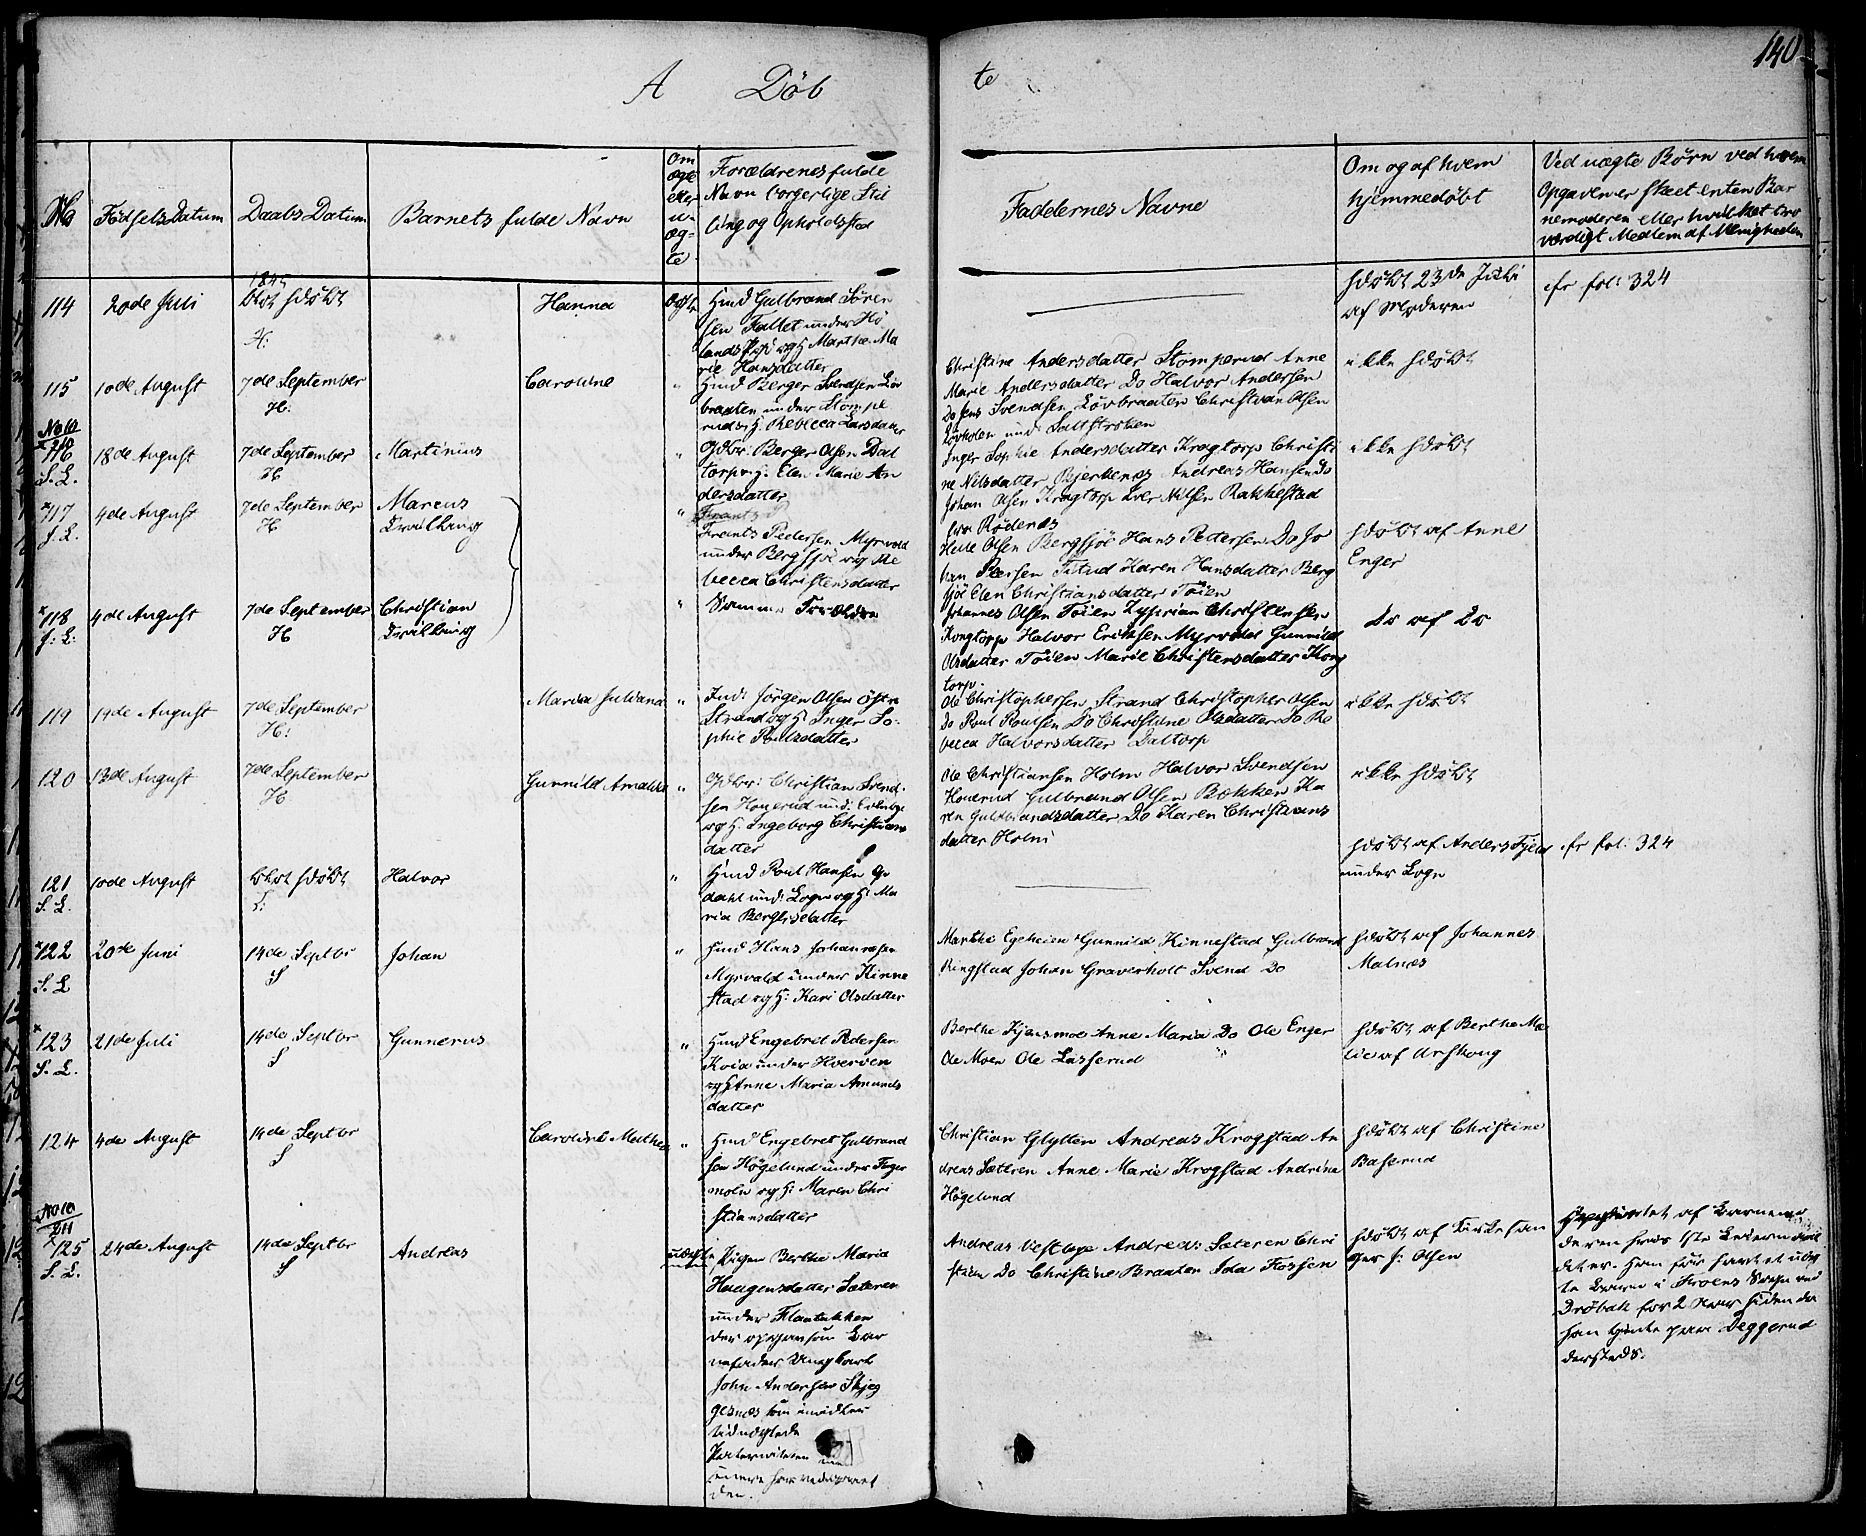 140
A Döb te
No
Födsels Datum
Daabs Datum
Barnets fulde Navn
Om
ægte
eller
u-
æg-
te
Forældrenes fulde
Navn borgerlige Stil
ling og Opholdssted
Faddernes Navne
Om og af hvem
hjemmedöbt
Ved uægte Börn ved hvem
Opgaven er skeet enten Bar
nemoderen eller hvilket tro
værdigt Medlem af Menigheden
1845
114 20de Juli
blot hdöbt
H:
Hanna
Ægte
Huusmd Gulbrand Sören
sen Fallet under Hö
lands Pgd og H: Marthe Ma
rie Hansdatter
hdöbt 23de Juli
af Moderen
cfr fol: 324
115 10de August
7de September
H:
Caroline
"
Huusmd Berger Svendsen Löv
braaten under Stompe
rud og H: Rebecca Larsdatter
Christine Andersdatter Stomperud Anne
Marie Andersdatter Do Halvor Andersen
Do Jens Svendsen Lövbraaten Christian Olsen
ikke hdöbt
No 10
210
116 18de August
S. L.
7de September
H
Martinius
"
Gdbr: Berger Olsen Dal
torp og H: Elen Marie An
dersdatter
Inger Sophie Andersdatter Kragtorp Christi
ne Nilsdatter Bjerkenes Andreas Hansen Do
Johan Olsen Kragtorp Iver Nilsen Rakkestad
fra Rödenes
ikke hdöbt
117 4de August
S. L.
7de September
H
Marcus
Tvilling
"
Frants Pedersen Myrvold
under Bergsjö og Re
becca Christensdatter
Helle Olsen Bergsjöe Hans Pettersen Do Jo
han Hansdatter Berg
sjöe Elen Christiansdatter Töien
hdöbt af Anne
Enger
118 4de August
S: L:
7de September
H
Christian
Tvilling
"
Samme Forældre
Johannes Olsen Töien Zyprian Christensen
Kragtorp Halvor Eriksen Myrvold Gunnild
Olsdatter Töien Marie Christensdatter Krag
torp.
Do af Do
119 14de August
7de September
H:
Maria Juliana
"
Ind: Jörgen Olsen Östre
Strand og H: Inger So:
phie Poulsdatter
Ole Christophersen Strand Christopher Olsen
Do Poul Poulsen Do Christine Olsdatter Do Re
becca Halvorsdatter Daltorp
ikke hdöbt
120 13de August
7de September
H
Gunnild Amalie
"
Gdbr: Christian Svend-
sen Honerud
og H: Ingeborg Christians
datter
Ole Christiansen Holm Halvor Svendsen
Honerud Gulbrand Olsen Bækken Ka
ren Guldbrandsdatter Do Karen Christians
datter Holm
ikke hdöbt
121 10de August
S. L.
blot hdöbt
S:
Halvor
"
Huusmd Poul Hansen
dahl und: Loge og H: Ma
ria Bergersdatter
hdöbt af Anders Fjeld
under Loge
cfr fol: 324
122 20de Juni
S. L
14de Septbr
S
Johan
"
Huusmd Hans Johannesen
Myrvold under Kinne
stad og H: Kari Olsdatter
Marthe Egeheien Gunnild Kinnestad Gulbrand
Ringstad Johan Graverholt Svend Do
hdöbt af Johannes
Malnæs
123 21de Juli
S. L.
14de Septbr
S
Gunnerus
"
Huusmd Engebret Pedersen
under Hverven
og H Anne Maria Amunds
datter
Berthe Kjensmoe Anne Maria Do Ole Enger
Ole Moen Ole Lasserud
hdöbt af Berthe Ma
lie af Urskoug
124 4de August
14de Septbr
S
Caroline Mathea
"
Huusmd Engebret Gulbrand
sen Högelund under
og H: Maren Chri
stiansdatter
Christian Glytten Andreas Krogstad An
dreas Sæteren Anne Marie Krogstad Andrine
Högelund
hdöbt af Christine
Baserud
No 10
211
125 24de August
S. L.
14de Septbr
S
Andreas
uægte
Pigen Berthe Maria
Haagensdatter Sæteren
under
der opgav som Bar
nefader Ungkarl
John Andersen Skjeg
gesnes som imidler
tid nægtede
Paterniteten
Andreas Vestbye Andreas Sæteren Chri
stian Do Christine Braaten Ida Fossen
hdöbt af Kirkesan
ger J. Olsen
af Barnemo
deren hendes 1ste
hun för havt et uæg
te Barn i Froens Sogn ved
Dröbak for 2 Aar siden da
hun tjente paa Deggerud
dersteds.